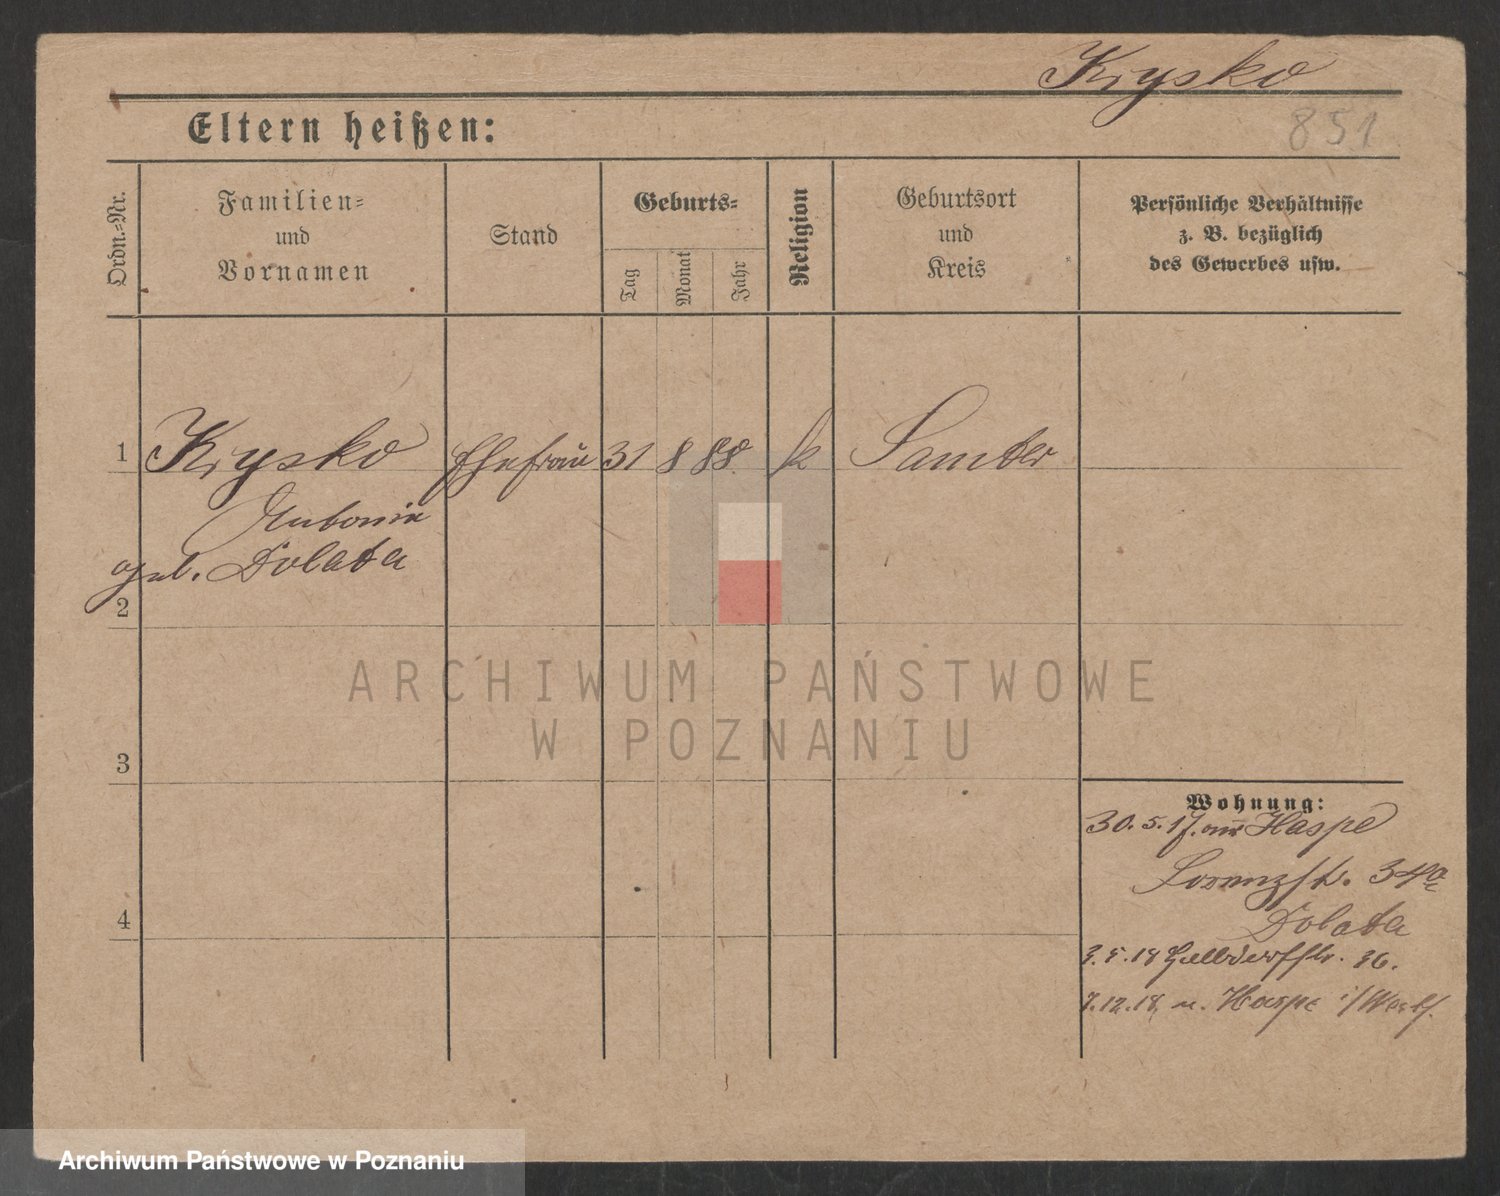 Krysko
851
Eltern heißen:
Ordn.=Nr.
Familien=
und
Vornamen
Stand
Geburts=
Tag
Monat
Jahr
Religion
Geburtsort
und
Kreis
Persönliche Verhältnisse
z. B. bezüglich
des Gewerbes usw.
1 Krysko Ehefrau 31 8 88 k Samter
Antonie
geb. Dolata
2
3
4
Wohnung:
30. 5. 17. aus Haspe
Lorenzstr. 34a
Dolata
3. 5. 18 36.
7. 12. 18, n. Haspe i/Westf.
ARCHIWUM PAŃSTWOWE
W POZNANIU
Archiwum Państwowe w Poznaniu